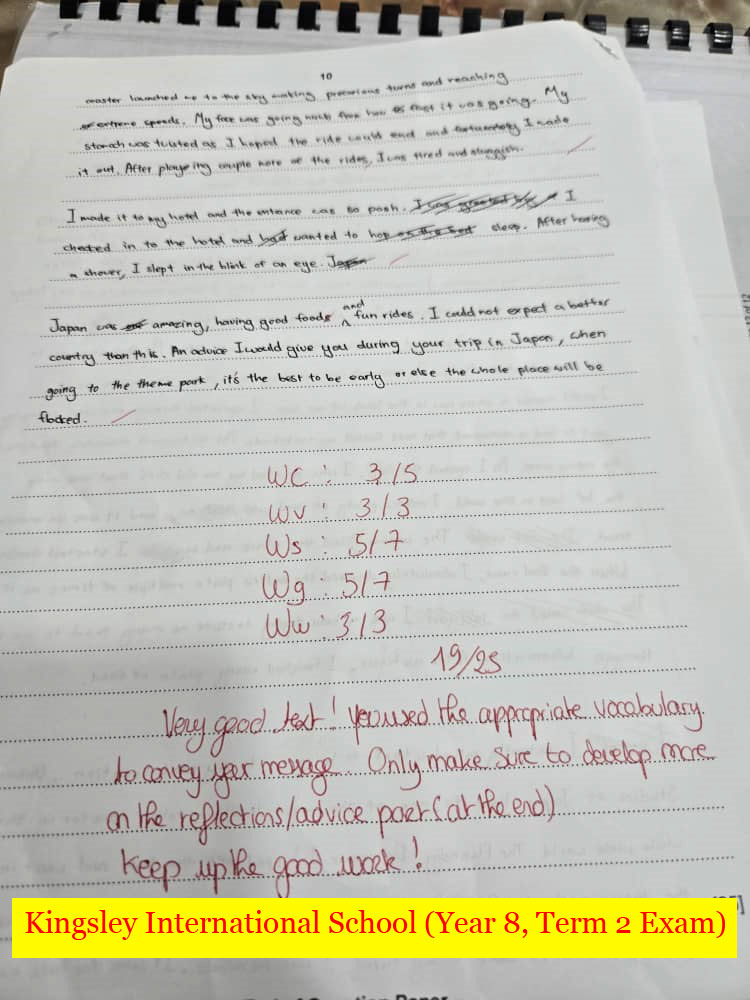 10
master launched me to the sky making precarious turns and reaching
extreme speeds. My face was going numb from how fast it was going. My
stomach was twisted as I hoped the ride could end and fortunately I made
it out. After playeing couple more of the rides, I was tired and sluggish.
I made it to my hotel and the entrance was so posh. I was greeted by a I
checked in to the hotel and had wanted to hop on the bed sleep. After having
a shower, I slept in the blink of an eye. Japan
Japan was amazing, having good foods and fun rides. I could not expect a better
country than this. An advice I would give you during your trip in Japan, when
going to the theme park, it's the best to be early or else the whole place will be
flocked.
WC : 3/5
WV : 3/3
Ws : 5/7
Wg : 5/7
Ww : 3/3
19/25
Very good text! You used the appropriate vocabulary
to convey your message. Only make sure to develop more
on the reflections/advice part (at the end)
Keep up the good work!
Kingsley International School (Year 8, Term 2 Exam)